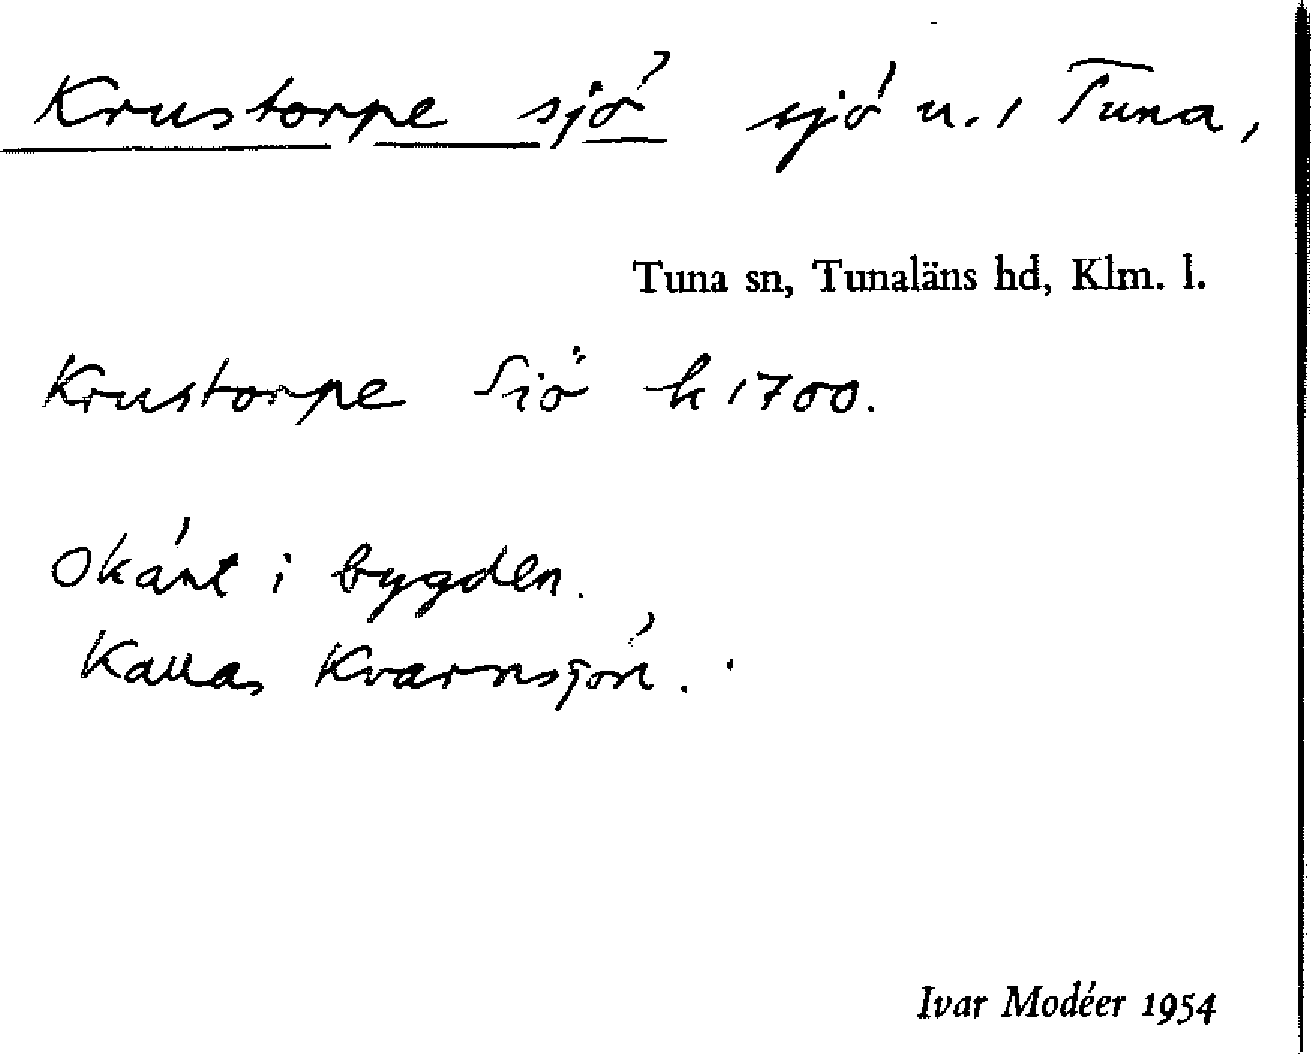 Krustorpe sjö sjö n. i Tuna,
Tuna sn, Tunaläns hd, Klm. l.
Krustorpe Siö k 1700.
Okänt i bygden.
Kallas Kvarnsjön.
Ivar Modéer 1954